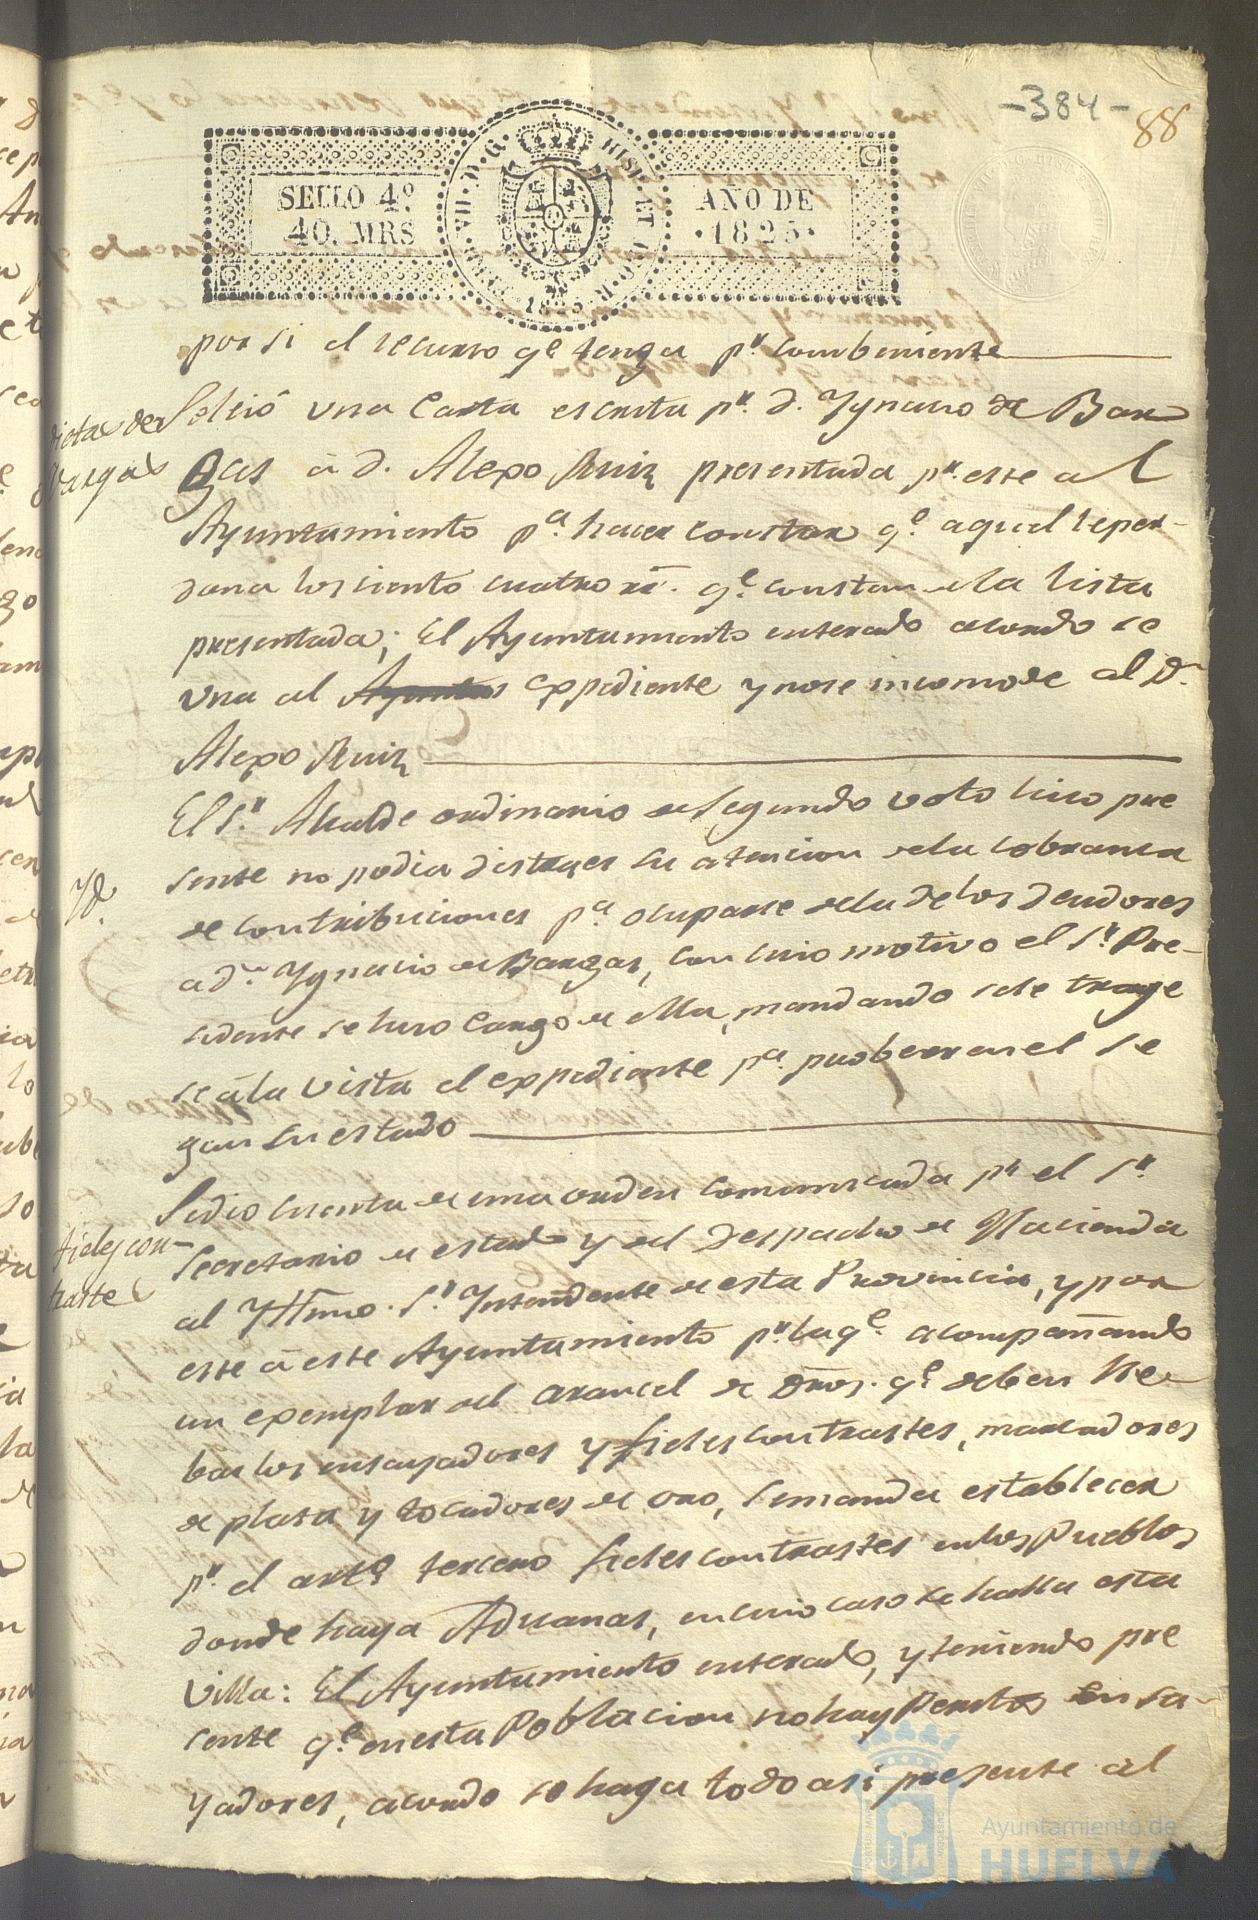 -384-
88
SELLO 4º
40. MRS
AÑO DE
1825
HISP. ET IND. R.
VII. D. G.
1825
por si el recurso qe tenga pr combeniente
Se leió una Carta escrita pr. d. Ygnacio de Bar
gas á d. Alexo Ruiz presentada pr. este al
Ayuntamiento pa. hacer constar qe. aquel le per-
dona los ciento cuatro rs. qe. constan de la lista
presentada; El Ayuntamiento enterado acordo se
una al expediente y no se incomode al Dn.
Alexo Ruiz
Vargas
El Sr. Alcalde ordinario de segundo voto hiso pre
sente no podia distraer su atencion de la cobranza
de contribuciones pa. ocuparse de la de los deudores
a Dn. Ygnacio de Bargas, con cuio motivo el Sr. Pre-
sidente se hiso Cargo de ella, mandando se le traje
se a la vista el expediente pa. probeer en el se
gun su estado
Yd.
Se dio cuenta de una orden comunicada pr. el Sr.
Secretario de estado y del Despacho de Hacienda
al Yllmo. Sr. Yntendente de esta Provincia, y por
este á este Ayuntamiento pr. la qe. acompañando
un exemplar del arancel de dros. qe. deben lle-
bar los ensayadores y fieles contrastes, marcadores
de plata y tocadores de oro, se manda establecer
pr. el arto. tercero fieles contrastes en los Pueblos
donde haya Aduanas, en cuio caso se halla esta
Villa: El Ayuntamiento enterado, y teniendo pre
sente qe. en esta Poblacion no hay Peritos Ensa-
yadores, acordo se haga todo asi presente al
fieles con-
traste
Ayuntamiento de
HUELVA